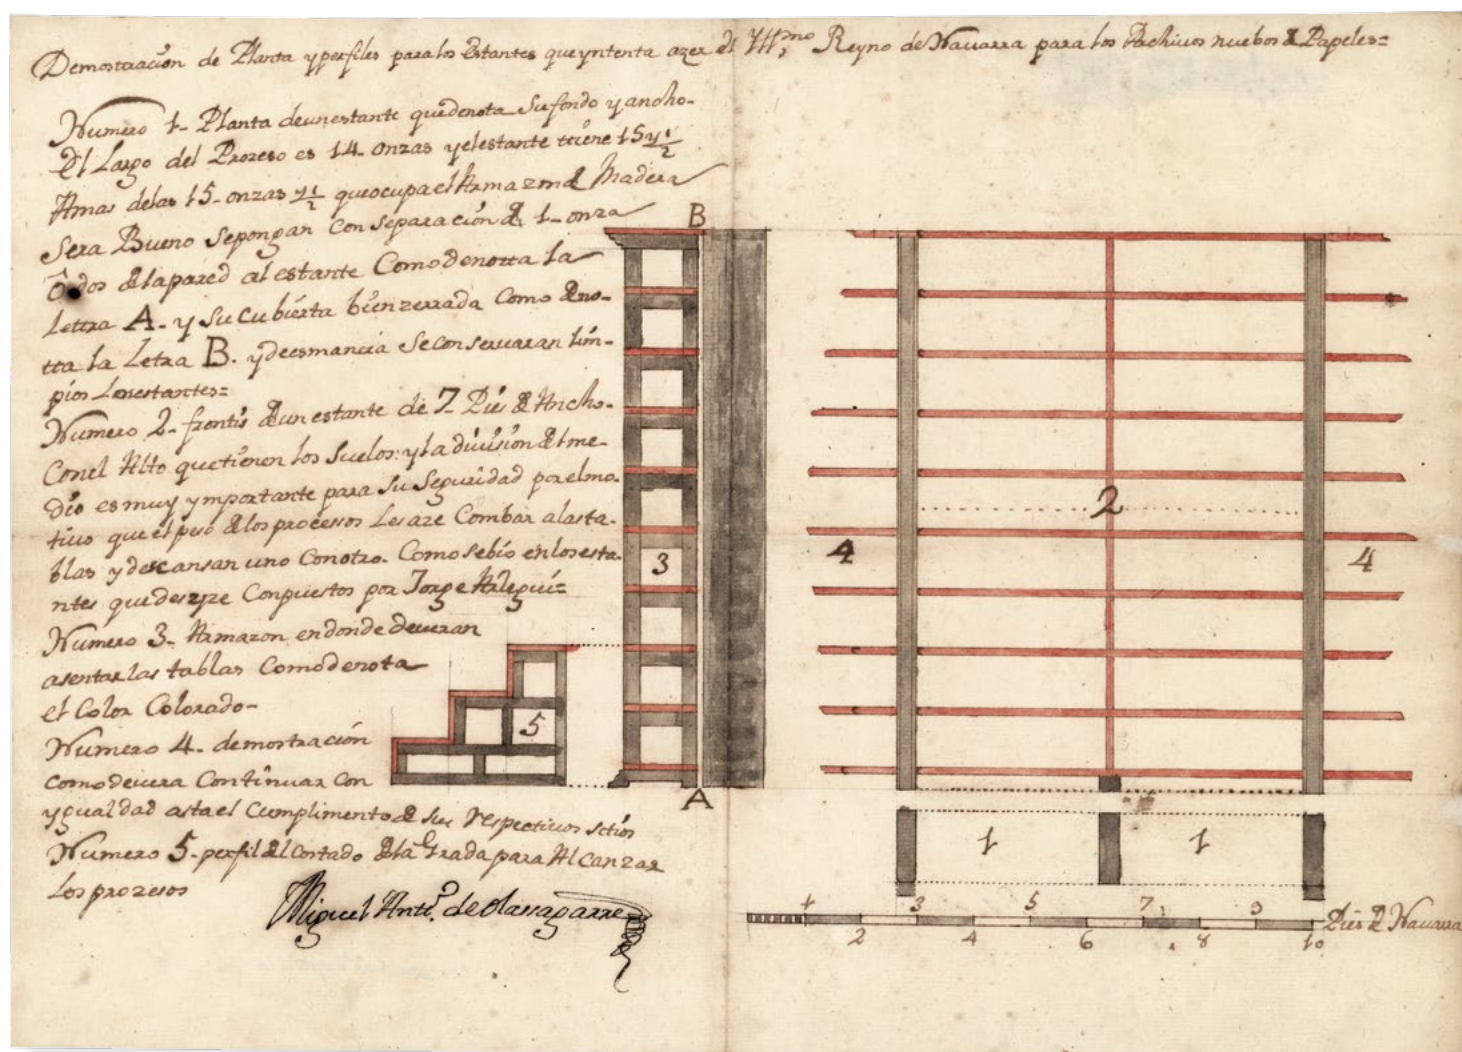 Demostración de Planta y perfiles para los Estantes que yntenta azer el Ill.mo Reyno de Navarra para los Archivos nuebos de Papeles=
Numero 1- Planta de un estante que denota su fondo y ancho-
El Largo del Prozeso es 14 onzas y el estante tiene 15 y 1/2
Amas delas 15- onzas y 1/2 que ocupa el Armazon de Madera
Sera Bueno se pongan con separación de 1- onza
ô dos de la pared al estante Como denota la
Letra A- y su cubierta bien zerrada Como deno-
tta la Letra B. y de esmancia se conservaran lim-
pios los estantes=
Numero 2- frontis de un estante de 7- Pies de Ancho-
Con el Alto que tienen los Suelos: y la división del me-
dio es muy ymportante para su seguridad por el mo-
tivo que el peso de los procesos Les aze Combar alas ta-
blas y descansan uno con otro. Como se bio en los esta-
ntes que desyze Conpuestos por Jorge
Numero 3- Armazon en donde deveran
asentar las tablas Como denota
el Color Colorado-
Numero 4- demostración
como devera Continuar con
ygualdad asta el Cumplimento de sus respectivos sitios
Numero 5- perfil del Cortado de la Grada para Alcanzar
Los prozesos
Miguel Ant.o de Olasagarre
B
3
5
A
2
4
4
1
1
1 3 5 7 9
2 4 6 8 10
Pies de Navarra